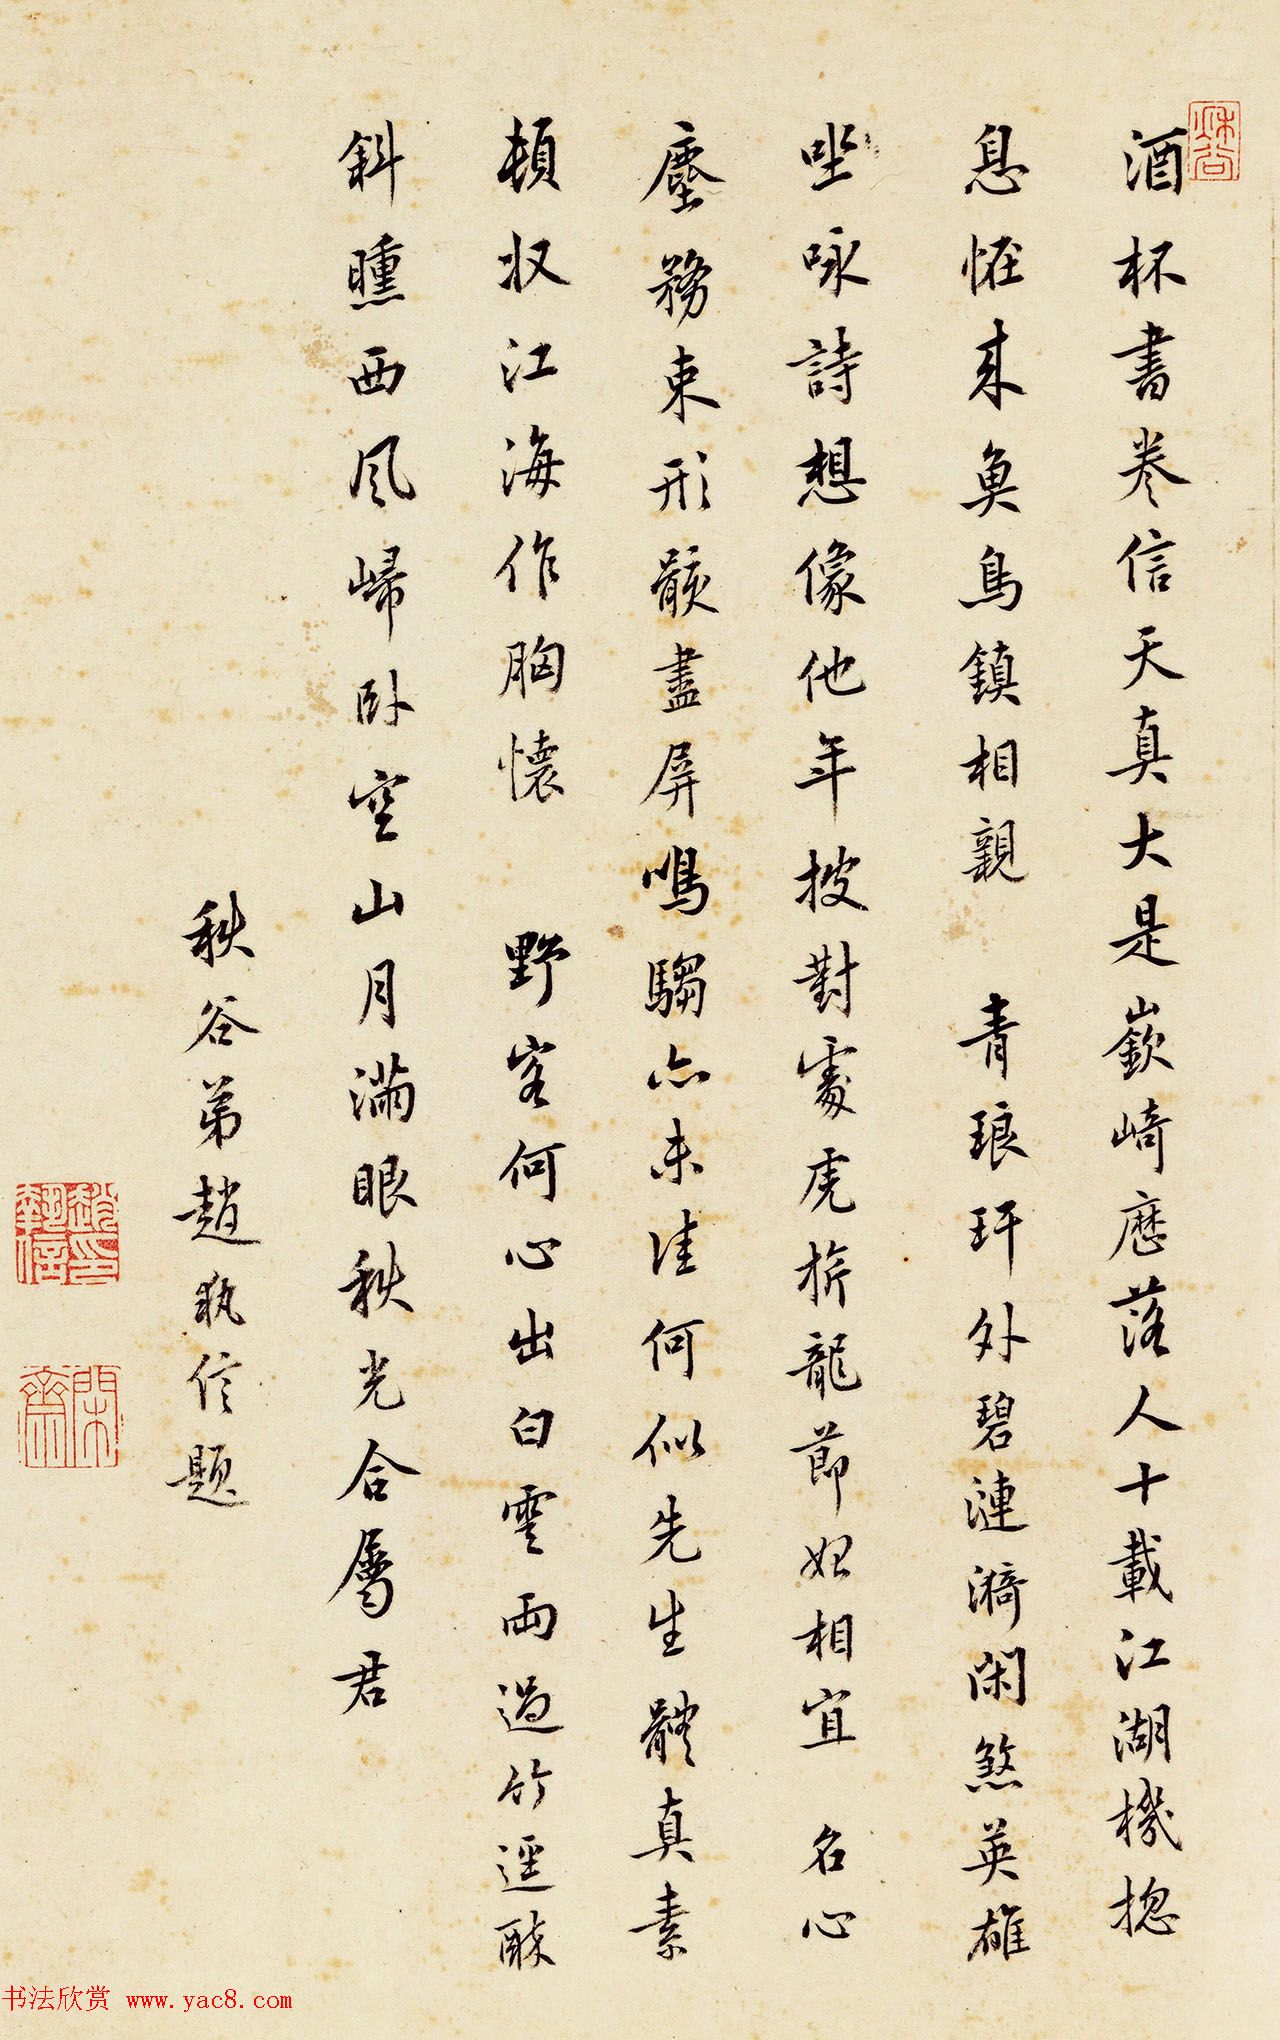 酒杯書卷信天真大是嶔崎歷落人十載江湖機揔
息恠來魚鳥鎮相親　青琅玕外碧漣漪閑煞英雄
坐咏詩想像他年披對處虎旂龍節始相宜　名心
塵務束形骸盡屏鳴騶亦未佳何似先生體真素
頓収江海作胸懷　野客何心出白雲雨過竹逕
斜曛西風歸卧空山月滿眼秋光合屬君
秋谷弟趙執信題
秋谷
趙執信印
閑齋
书法欣赏 www.yac8.com